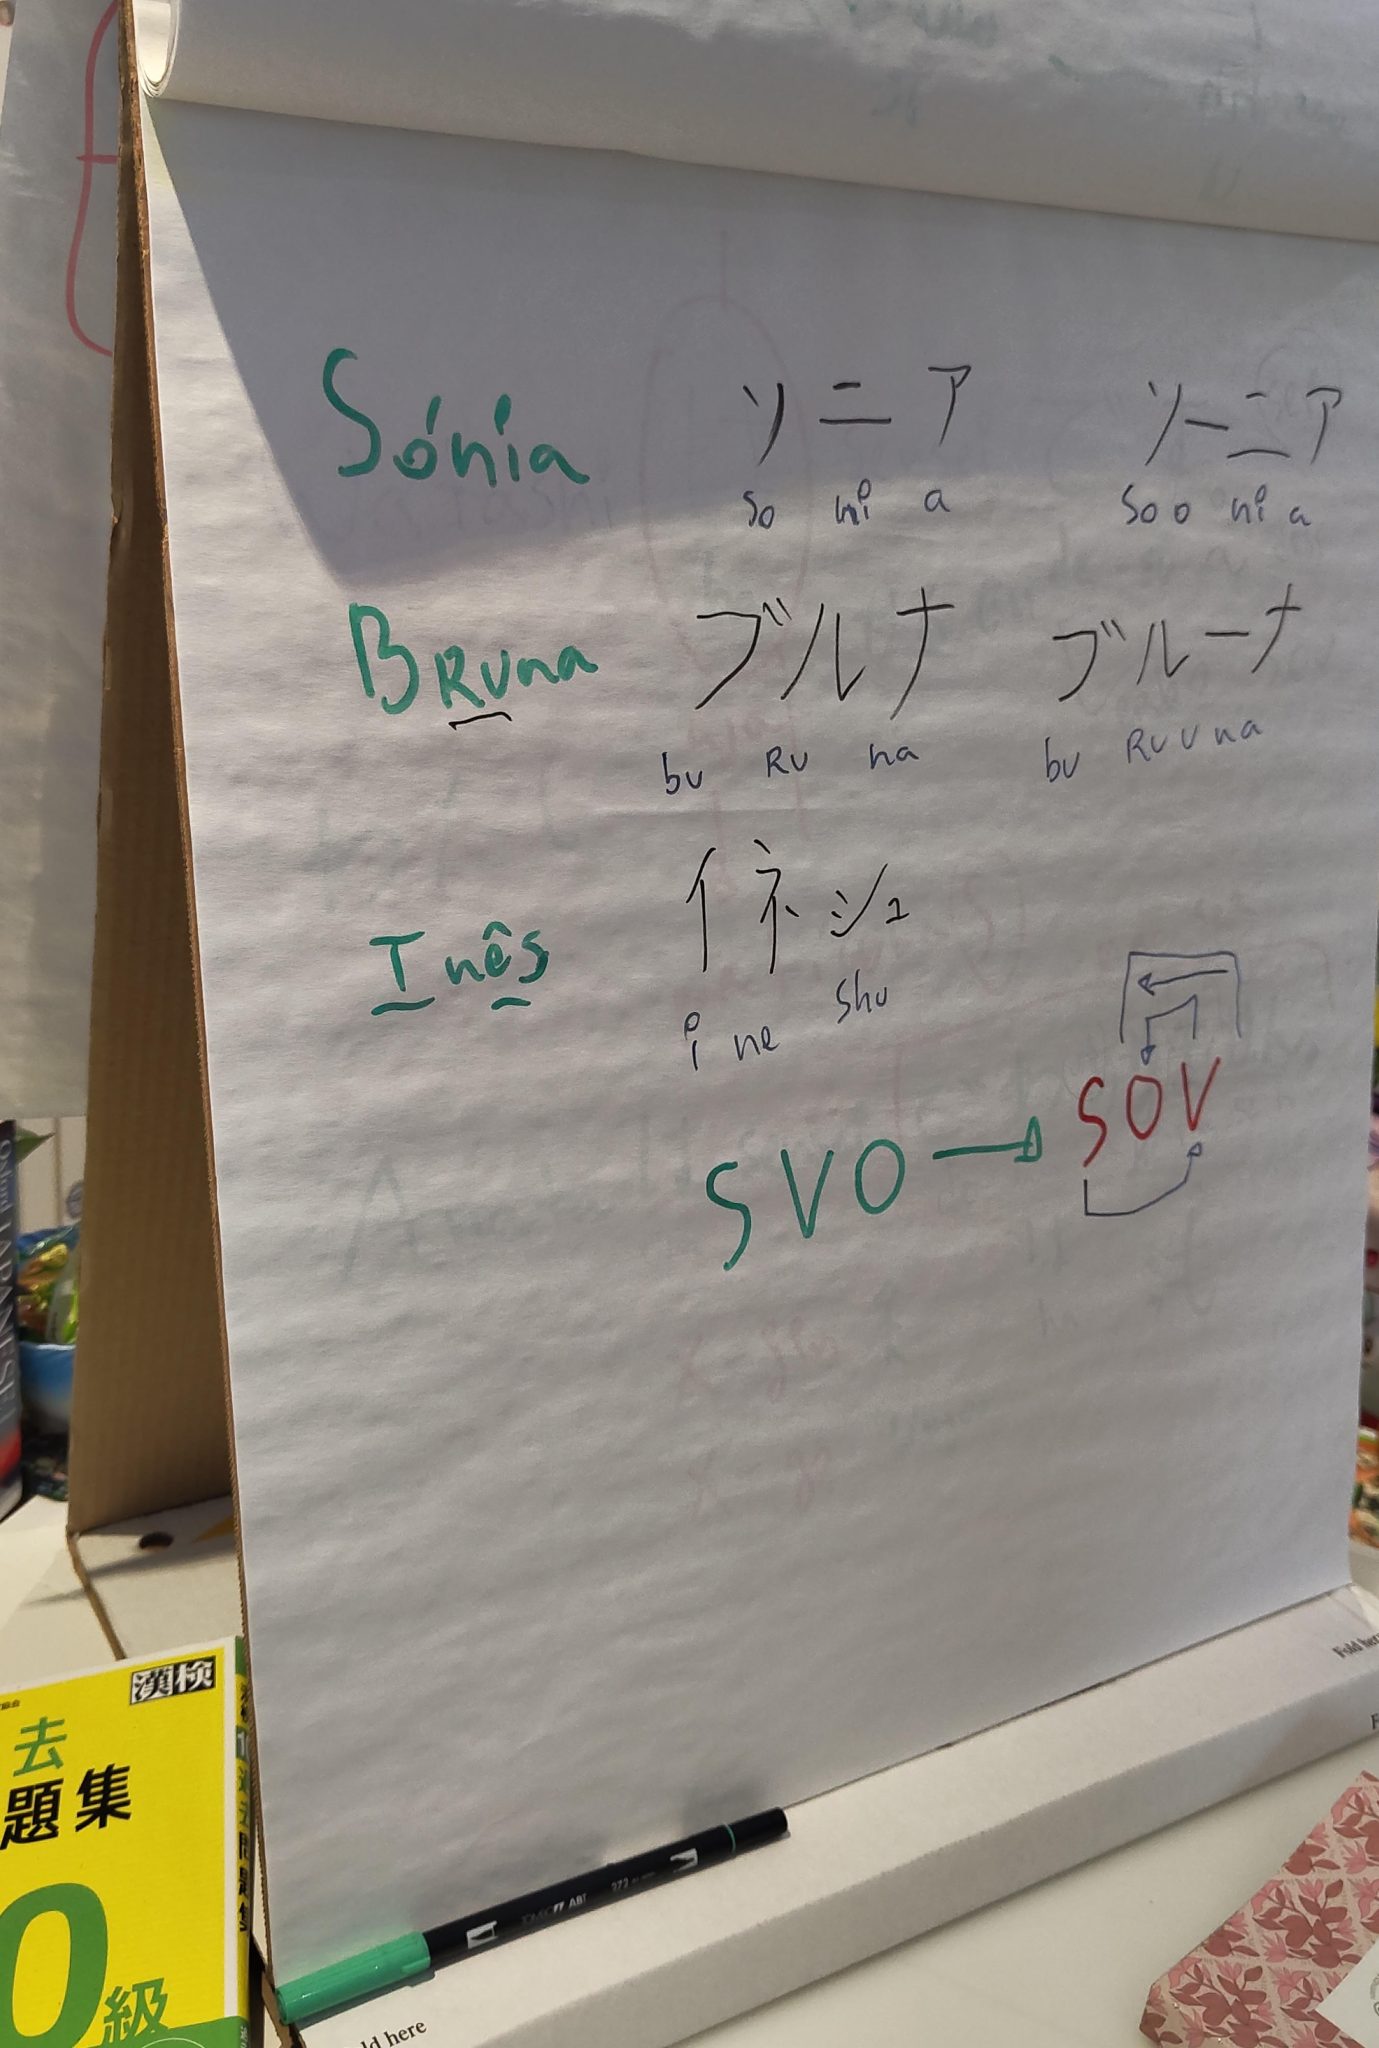 Sónia ソニア ソーニア
so ni a soo ni a
BRuna ブルナ ブルーナ
bu Ru na bu Ruu na
Inês イネシュ
i ne shu
SVO → SOV
OXford JAPANESE
漢検
去
題集
0級
TOMBOW ABT
Fold here